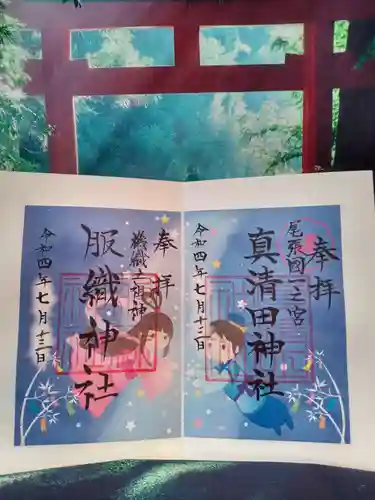 奉拝
尾張國一之宮
真清田神社
令和四年七月十三日
奉拝
機織之祖神
服織神社
令和四年七月十三日